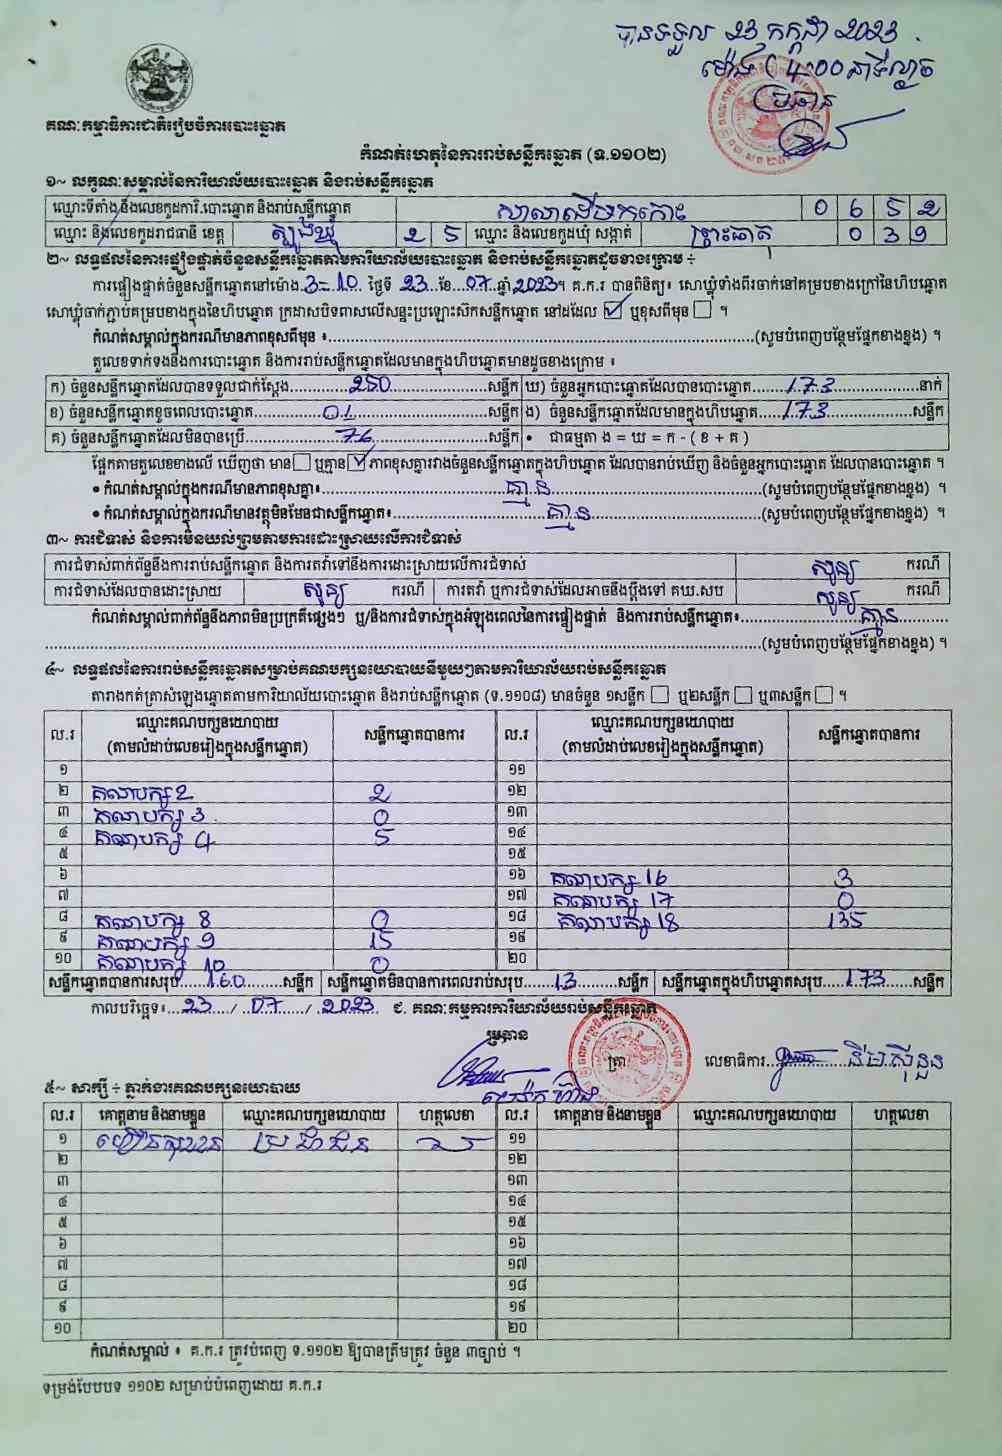 បានទទួល 23 កក្កដា 2023.
ម៉ោង 4:00 នាទីល្ងាច
ប្រធាន
គណៈកម្មាធិការជាតិរៀបចំការបោះឆ្នោត
កំណត់ហេតុនៃការរាប់សន្លឹកឆ្នោត (ទ.១១០២)
១~ លក្ខណៈសម្គាល់នៃការិយាល័យបោះឆ្នោត និងរាប់សន្លឹកឆ្នោត
ឈ្មោះទីតាំង/និងលេខកូដការិ.បោះឆ្នោត និងរាប់សន្លឹកឆ្នោត 0 6 5 2
ឈ្មោះ និងលេខកូដរាជធានី ខេត្ត ត្បូងឃ្មុំ 2 5 ឈ្មោះ និងលេខកូដឃុំ សង្កាត់ ព្រះធាតុ 0 3 9
២~ លទ្ធផលនៃការផ្ទៀងផ្ទាត់ចំនួនសន្លឹកឆ្នោតតាមការិយាល័យបោះឆ្នោត និងរាប់សន្លឹកឆ្នោតដូចខាងក្រោម ÷
ការផ្ទៀងផ្ទាត់ចំនួនសន្លឹកឆ្នោតនៅម៉ោង 3-10 ថ្ងៃទី 23 ខែ 07 ឆ្នាំ 2023។ គ.ក.រ បានពិនិត្យ៖ សោឃ្លុំទាំងពីរចាក់នៅគម្របខាងក្រៅនៃហិបឆ្នោត
សោឃ្លុំចាក់ភ្ជាប់គម្របខាងក្នុងនៃហិបឆ្នោត ក្រដាសបិទពាសលើសន្ទះប្រឡោះស៊កសន្លឹកឆ្នោត នៅដដែល ☑ ឬខុសពីមុន ☐ ។
កំណត់សម្គាល់ក្នុងករណីមានភាពខុសពីមុន ៖...(សូមបំពេញបន្ថែមផ្នែកខាងខ្នង) ។
តួលេខទាក់ទងនឹងការបោះឆ្នោត និងការរាប់សន្លឹកឆ្នោតដែលមានក្នុងហិបឆ្នោតមានដូចខាងក្រោម ៖
ក) ចំនួនសន្លឹកឆ្នោតដែលបានទទួលជាក់ស្តែង...250...សន្លឹក ឃ) ចំនួនអ្នកបោះឆ្នោតដែលបានបោះឆ្នោត...173...នាក់
ខ) ចំនួនសន្លឹកឆ្នោតខូចពេលបោះឆ្នោត...01...សន្លឹក ង) ចំនួនសន្លឹកឆ្នោតដែលមានក្នុងហិបឆ្នោត...173...សន្លឹក
គ) ចំនួនសន្លឹកឆ្នោតដែលមិនបានប្រើ...76...សន្លឹក • ជាធម្មតា ង = ឃ = ក - ( ខ + គ )
ផ្អែកតាមតួលេខខាងលើ ឃើញថា មាន ☐ ឬគ្មាន ☑ ភាពខុសគ្នារវាងចំនួនសន្លឹកឆ្នោតក្នុងហិបឆ្នោត ដែលបានរាប់ឃើញ និងចំនួនអ្នកបោះឆ្នោត ដែលបានបោះឆ្នោត ។
• កំណត់សម្គាល់ក្នុងករណីមានភាពខុសគ្នា៖...គ្មាន...(សូមបំពេញបន្ថែមផ្នែកខាងខ្នង) ។
• កំណត់សម្គាល់ក្នុងករណីមានវត្ថុមិនមែនជាសន្លឹកឆ្នោត៖...គ្មាន...(សូមបំពេញបន្ថែមផ្នែកខាងខ្នង) ។
៣~ ការជំទាស់ និងការមិនយល់ព្រមតាមការដោះស្រាយលើការជំទាស់
ការជំទាស់ពាក់ព័ន្ធនឹងការរាប់សន្លឹកឆ្នោត និងការតវ៉ាទៅនឹងការដោះស្រាយលើការជំទាស់ សូន្យ ករណី
ការជំទាស់ដែលបានដោះស្រាយ សូន្យ ករណី ការតវ៉ា ឬការជំទាស់ដែលអាចនឹងប្តឹងទៅ គឃ.សប សូន្យ ករណី
កំណត់សម្គាល់ពាក់ព័ន្ធនឹងភាពមិនប្រក្រតីផ្សេងៗ ឬ/និងការជំទាស់ក្នុងអំឡុងពេលនៃការផ្ទៀងផ្ទាត់ និងការរាប់សន្លឹកឆ្នោត៖...គ្មាន...
...(សូមបំពេញបន្ថែមផ្នែកខាងខ្នង) ។
៤~ លទ្ធផលនៃការរាប់សន្លឹកឆ្នោតសម្រាប់គណបក្សនយោបាយនីមួយៗតាមការិយាល័យរាប់សន្លឹកឆ្នោត
តារាងកត់ត្រាសំឡេងឆ្នោតតាមការិយាល័យបោះឆ្នោត និងរាប់សន្លឹកឆ្នោត (ទ.១១០៨) មានចំនួន ១សន្លឹក ☐ ឬ២សន្លឹក ☐ ឬ៣សន្លឹក ☐ ។
ល.រ ឈ្មោះគណបក្សនយោបាយ (តាមលំដាប់លេខរៀងក្នុងសន្លឹកឆ្នោត) សន្លឹកឆ្នោតបានការ ល.រ ឈ្មោះគណបក្សនយោបាយ (តាមលំដាប់លេខរៀងក្នុងសន្លឹកឆ្នោត) សន្លឹកឆ្នោតបានការ
១ ១១
២ គណបក្ស 2 2 ១២
៣ គណបក្ស 3 0 ១៣
៤ គណបក្ស 4 5 ១៤
៥ ១៥
៦ ១៦ គណបក្ស 16 3
៧ ១៧ គណបក្ស 17 0
៨ គណបក្ស 8 0 ១៨ គណបក្ស 18 135
៩ គណបក្ស 9 15 ១៩
១០ គណបក្ស 10 0 ២០
សន្លឹកឆ្នោតបានការសរុប...160...សន្លឹក សន្លឹកឆ្នោតមិនបានការពេលរាប់សរុប...13...សន្លឹក សន្លឹកឆ្នោតក្នុងហិបឆ្នោតសរុប...173...សន្លឹក
កាលបរិច្ឆេទ៖ 23 / 07 / 2023 ជ. គណៈកម្មការការិយាល័យរាប់សន្លឹកឆ្នោត
ប្រធាន
ត្រា លេខាធិការ
៥~ សាក្សី ÷ ភ្នាក់ងារគណបក្សនយោបាយ
ល.រ គោត្តនាម និងនាមខ្លួន ឈ្មោះគណបក្សនយោបាយ ហត្ថលេខា ល.រ គោត្តនាម និងនាមខ្លួន ឈ្មោះគណបក្សនយោបាយ ហត្ថលេខា
១ ប្រជាជន ១១
២ ១២
៣ ១៣
៤ ១៤
៥ ១៥
៦ ១៦
៧ ១៧
៨ ១៨
៩ ១៩
១០ ២០
កំណត់សម្គាល់ ៖ គ.ក.រ ត្រូវបំពេញ ទ.១១០២ ឱ្យបានត្រឹមត្រូវ ចំនួន ៣ច្បាប់ ។
ទម្រង់បែបបទ ១១០២ សម្រាប់បំពេញដោយ គ.ក.រ